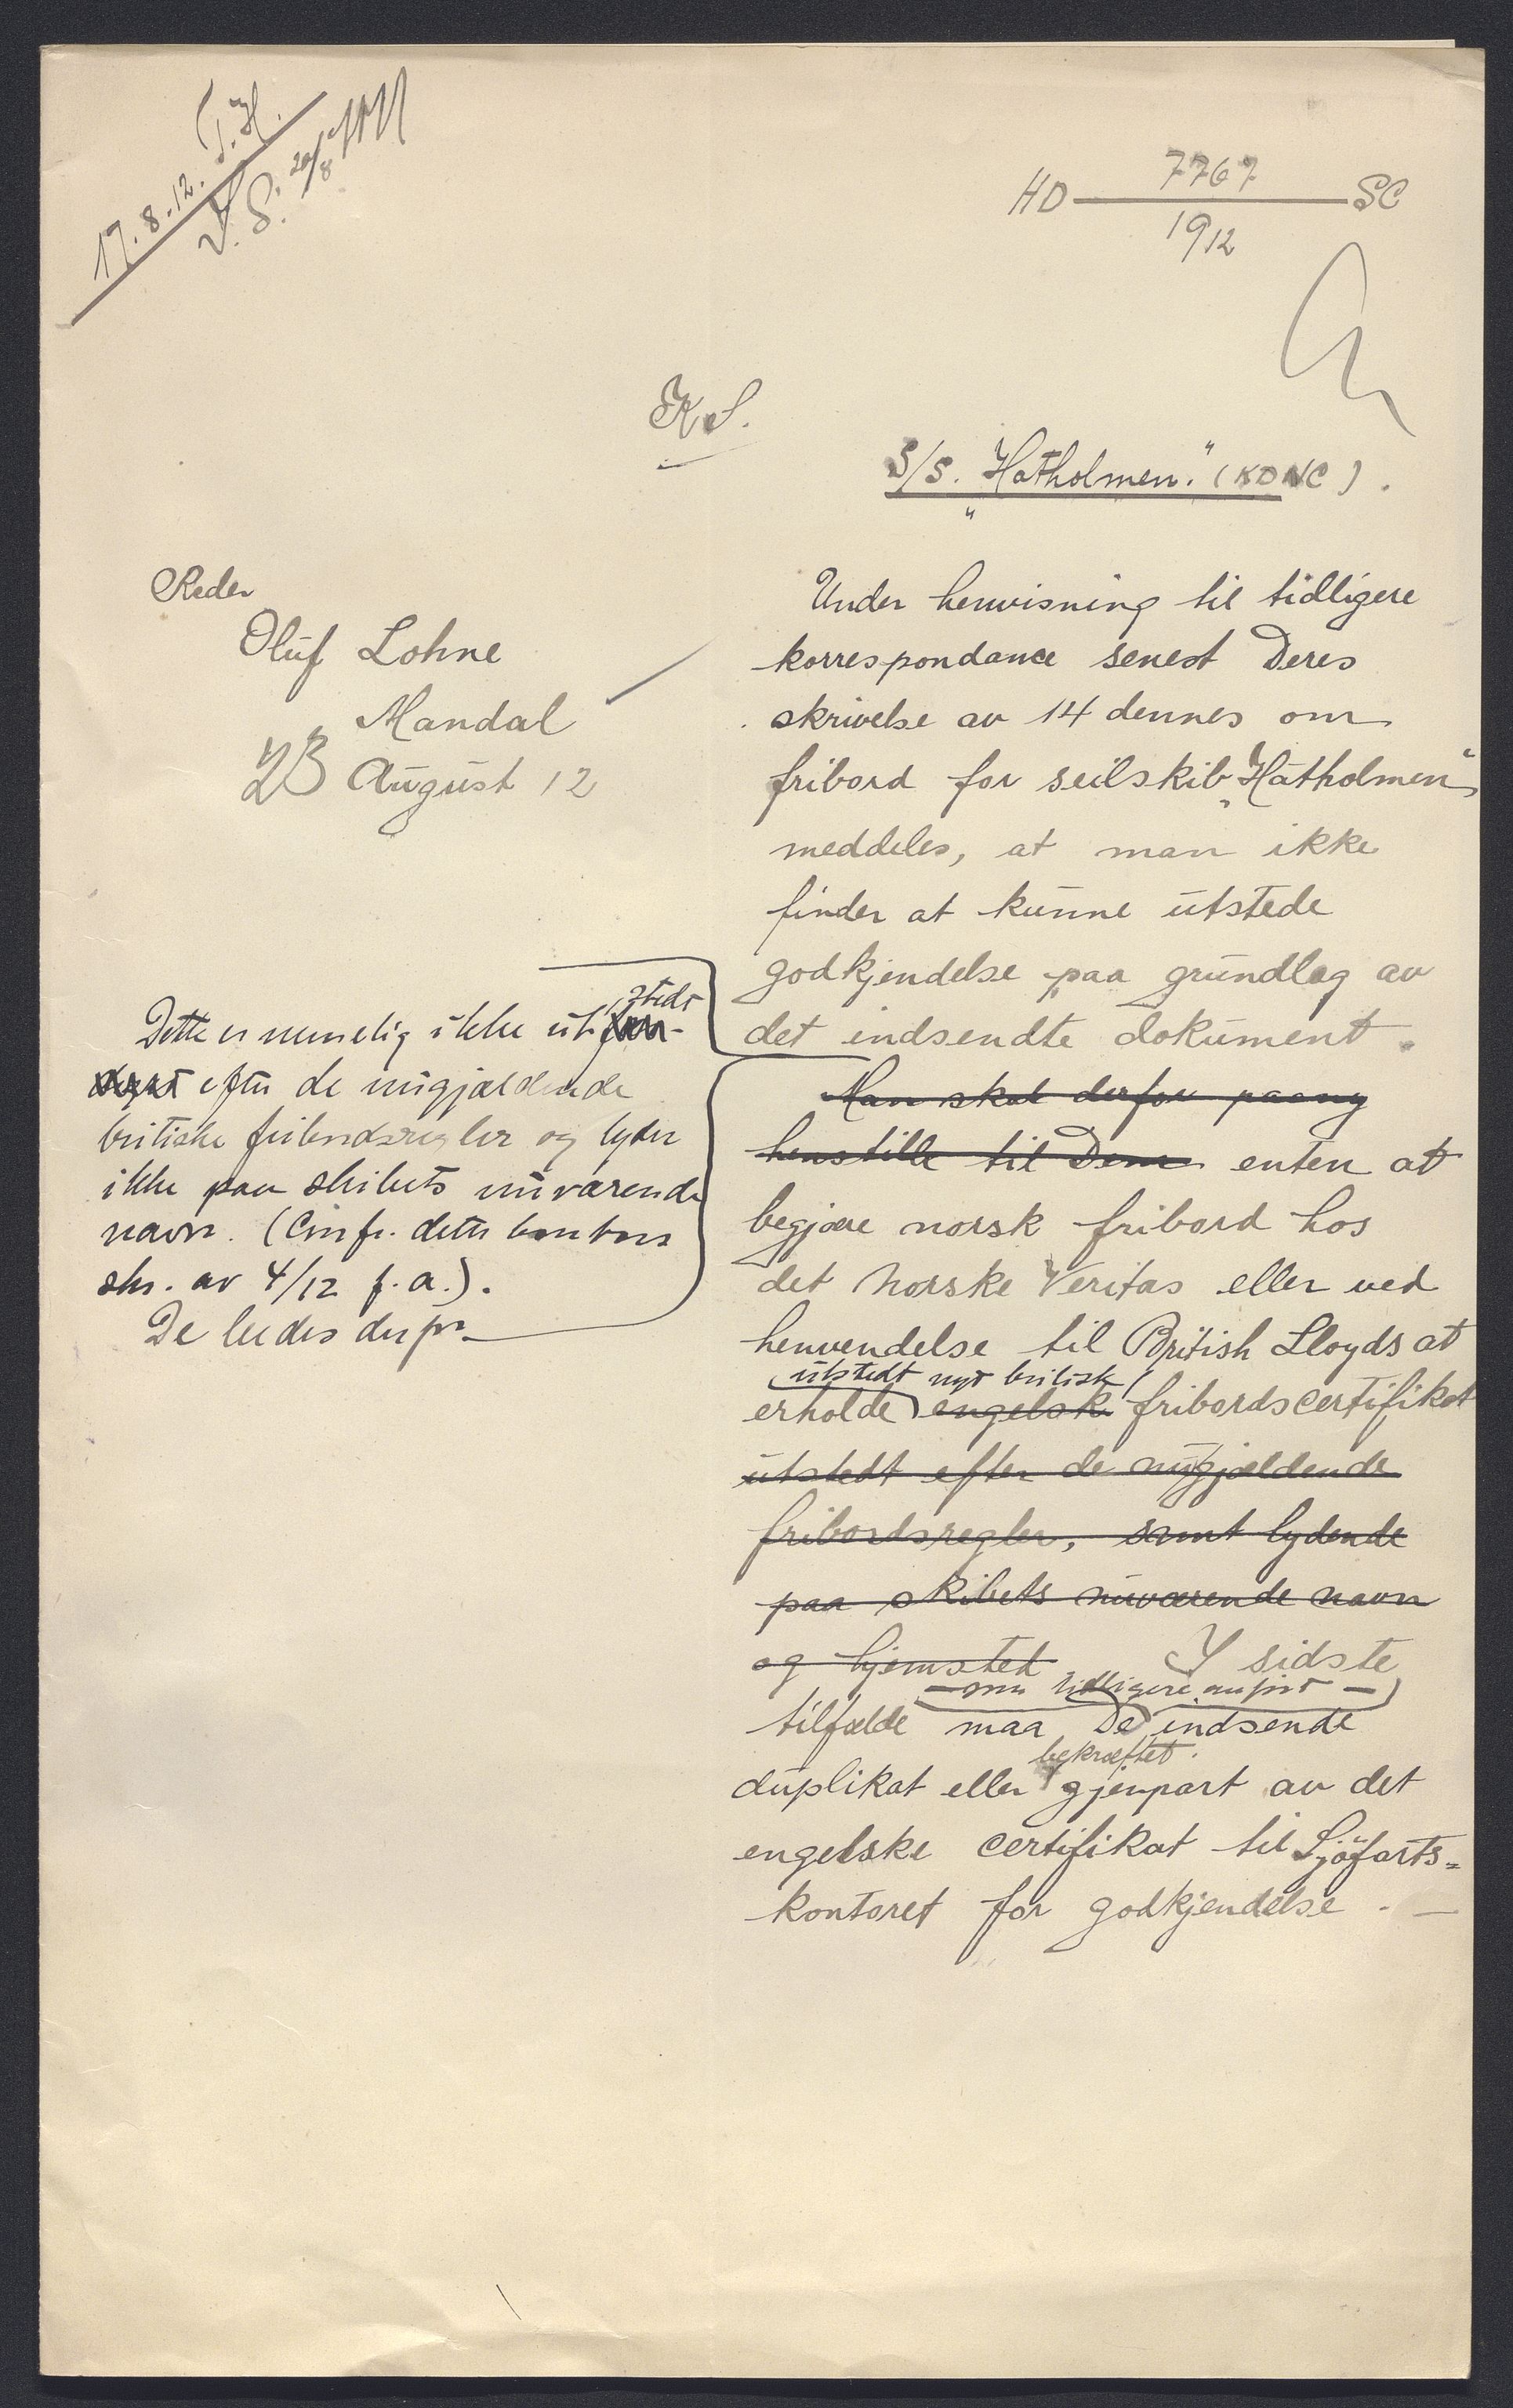 17.8.12. T.H.
V.S. 20/8
HD 7767 SC
1912
K.S.
S/S. „Hatholmen." (KDNC).
Reder
Oluf Lohne
Mandal
23 August 12
Under henvisning til tidligere
korrespondance senest Deres
skrivelse av 14 dennes om
fribord for seilskib „Hatholmen"
meddeles, at man ikke
finder at kunne utstede
godkjendelse paa grundlag av
det indsendte dokument.
Dette er nemelig ikke utstedt
efter de nugjældende
britiske fribordsregler og lyder
ikke paa skibets nuværende
navn. (Cmfr. dette kontors
skr. av 4/12 f.a.).
De bedes derfor
Man skal derfor paany
henstille til Dem enten at
begjære norsk fribord hos
det norske Veritas eller ved
henvendelse til British Lloyds at
utstedt nyt britisk
erholde engelsk fribordscertifikat
utstedt efter de nugjældende
fribordsregler, samt lydende
paa skibets nuværende navn
og hjemsted I sidste
– som tidligere anført –
tilfælde maa De indsende
bekræftet
duplikat eller gjenpart av det
engelske certifikat til Sjöfarts=
kontoret for godkjendelse. –